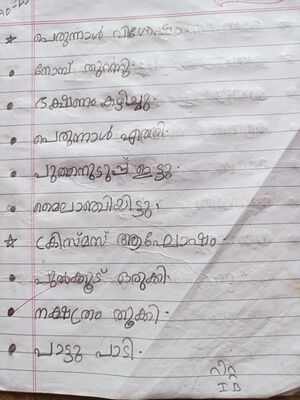 ☆ പെരുന്നാൾ വിശേഷം
• നോമ്പ് തുറന്നു.
• ഭക്ഷണം കഴിച്ചു.
• പെരുന്നാൾ എത്തി.
• പുത്തനുടുപ്പ് ഇട്ടു.
• മൈലാഞ്ചിയിട്ടു.
☆ ക്രിസ്മസ് ആഘോഷം
• പുൽക്കൂട് ഒരുക്കി.
• നക്ഷത്രം തൂക്കി.
• പാട്ടു പാടി.
I B